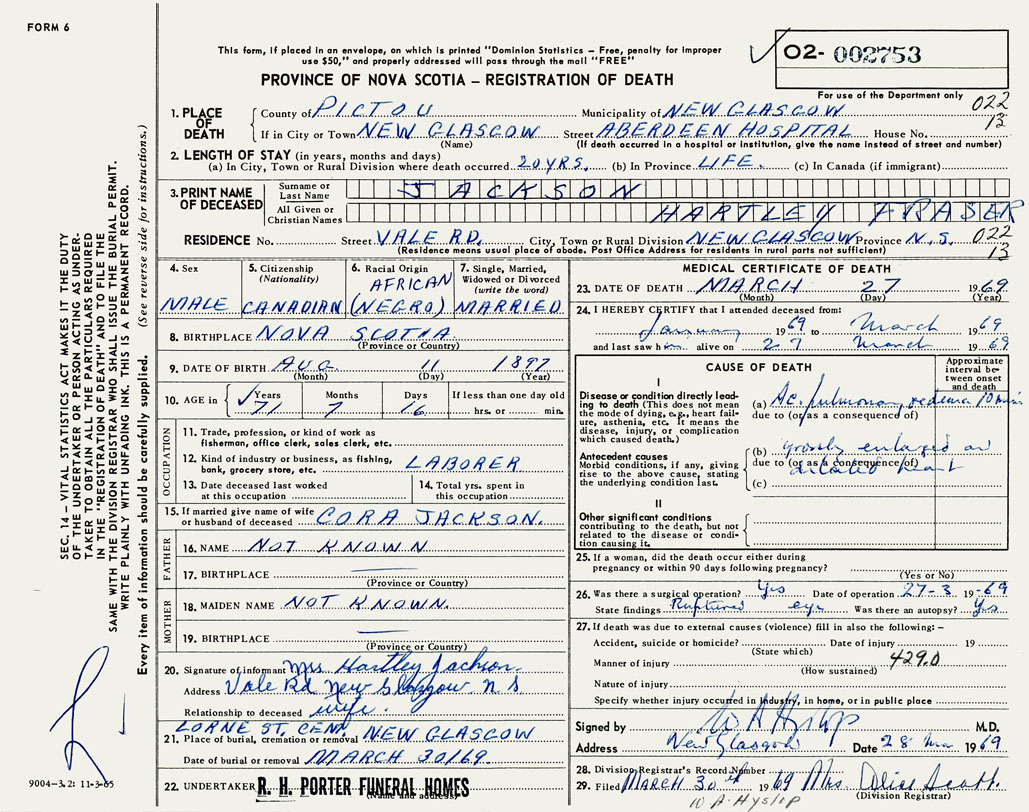 FORM 6
This form, if placed in an envelope, on which is printed "Dominion Statistics – Free, penalty for improper
use $50," and properly addressed will pass through the mail "FREE"
O2- 002753
PROVINCE OF NOVA SCOTIA – REGISTRATION OF DEATH
For use of the Department only
022
12
1. PLACE OF DEATH
County of PICTOU Municipality of NEW GLASGOW
If in City or Town NEW GLASGOW Street ABERDEEN HOSPITAL House No.
(Name) (If death occurred in a hospital or institution, give the name instead of street and number)
2. LENGTH OF STAY (in years, months and days)
(a) In City, Town or Rural Division where death occurred 20 YRS. (b) In Province LIFE. (c) In Canada (if immigrant)
3. PRINT NAME OF DECEASED
Surname or Last Name JACKSON
All Given or Christian Names HARTLEY FRASER
RESIDENCE No. Street VALE RD. City, Town or Rural Division NEW GLASGOW Province N.S. 022
(Residence means usual place of abode. Post Office Address for residents in rural parts not sufficient) 13
4. Sex MALE
5. Citizenship (Nationality) CANADIAN
6. Racial Origin AFRICAN (NEGRO)
7. Single, Married, Widowed or Divorced (write the word) MARRIED
8. BIRTHPLACE NOVA SCOTIA.
(Province or Country)
9. DATE OF BIRTH AUG. 11 1897
(Month) (Day) (Year)
10. AGE in Years Months Days If less than one day old
71 7 16 hrs. or min.
OCCUPATION
11. Trade, profession, or kind of work as
fisherman, office clerk, sales clerk, etc.
12. Kind of industry or business, as fishing,
bank, grocery store, etc. LABORER
13. Date deceased last worked
at this occupation
14. Total yrs. spent in
this occupation
15. If married give name of wife
or husband of deceased CORA JACKSON.
FATHER
16. NAME NOT KNOWN
17. BIRTHPLACE
(Province or Country)
MOTHER
18. MAIDEN NAME NOT KNOWN.
19. BIRTHPLACE
(Province or Country)
20. Signature of informant Mrs Hartley Jackson.
Address Vale Rd New Glasgow N S
Relationship to deceased wife.
LORNE ST. CEM.
21. Place of burial, cremation or removal NEW GLASGOW
Date of burial or removal MARCH 30/69.
22. UNDERTAKER R. H. PORTER FUNERAL HOMES
(Name and address)
MEDICAL CERTIFICATE OF DEATH
23. DATE OF DEATH MARCH 27 1969
(Month) (Day) (Year)
24. I HEREBY CERTIFY that I attended deceased from:
January 1969 to March 1969
and last saw him alive on 27 March 1969
CAUSE OF DEATH
Approximate interval between onset and death
I
Disease or condition directly leading to death (This does not mean the mode of dying, e.g., heart failure, asthenia, etc. It means the disease, injury, or complication which caused death.)
(a) Ac. pulmonary oedema 10 mins
due to (or as a consequence of)
Antecedent causes
Morbid conditions, if any, giving rise to the above cause, stating the underlying condition last.
(b) grossly enlarged
due to (or as a consequence of)
dilated heart
(c)
II
Other significant conditions
contributing to the death, but not related to the disease or condition causing it.
25. If a woman, did the death occur either during
pregnancy or within 90 days following pregnancy?
(Yes or No)
26. Was there a surgical operation? Yes Date of operation 27-3 19-69
State findings Ruptured eye Was there an autopsy? Yes
27. If death was due to external causes (violence) fill in also the following:–
Accident, suicide or homicide? Date of injury 19
(State which)
Manner of injury 429.0
(How sustained)
Nature of injury
Specify whether injury occurred in industry, in home, or in public place
Signed by W A Hyslop M.D.
Address New Glasgow Date 28 Mar 1969
28. Division Registrar's Record Number
29. Filed MARCH 30th 1969 Mrs Olive Scott
(Division Registrar)
10 A. Hyslop
SEC. 14 – VITAL STATISTICS ACT MAKES IT THE DUTY
OF THE UNDERTAKER OR PERSON ACTING AS UNDER-
TAKER TO OBTAIN ALL THE PARTICULARS REQUIRED
IN THE "REGISTRATION OF DEATH" AND TO FILE THE
SAME WITH THE DIVISION REGISTRAR WHO SHALL ISSUE THE BURIAL PERMIT.
WRITE PLAINLY WITH UNFADING INK. THIS IS A PERMANENT RECORD.
Every item of information should be carefully supplied. (See reverse side for instructions.)
9004-3.2: 11-3-65